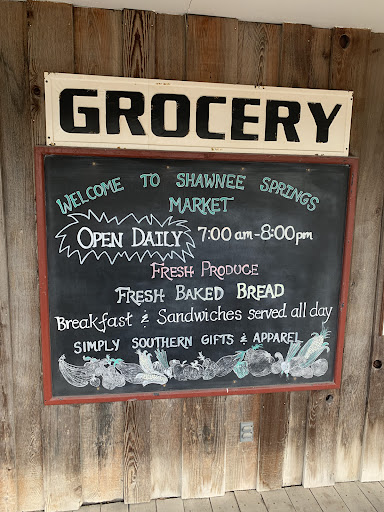 GROCERY
WELCOME TO SHAWNEE SPRINGS
MARKET
OPEN DAILY 7:00 am-8:00pm
FRESH PRODUCE
FRESH BAKED BREAD
Breakfast & Sandwiches served all day
SIMPLY SOUTHERN GIFTS & APPAREL